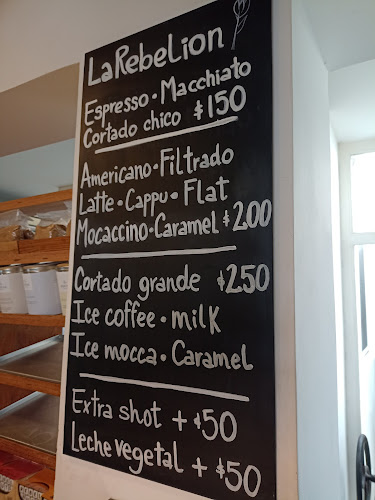 La Rebelion
Espresso • Macchiato
Cortado chico $150
Americano • Filtrado
Latte • Cappu • Flat
Mocaccino • Caramel $200
Cortado grande $250
Ice coffee • milk
Ice mocca • Caramel
Extra shot + $50
Leche vegetal + $50